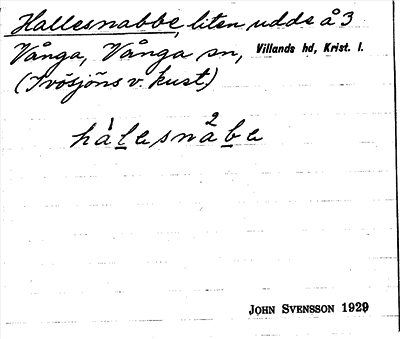 Hallesnabbe, liten udde å 3
Vånga, Vånga sn, Villands hd, Krist. l.
(Ivösjöns v. kust)
hàlesnåbe
JOHN SVENSSON 1929